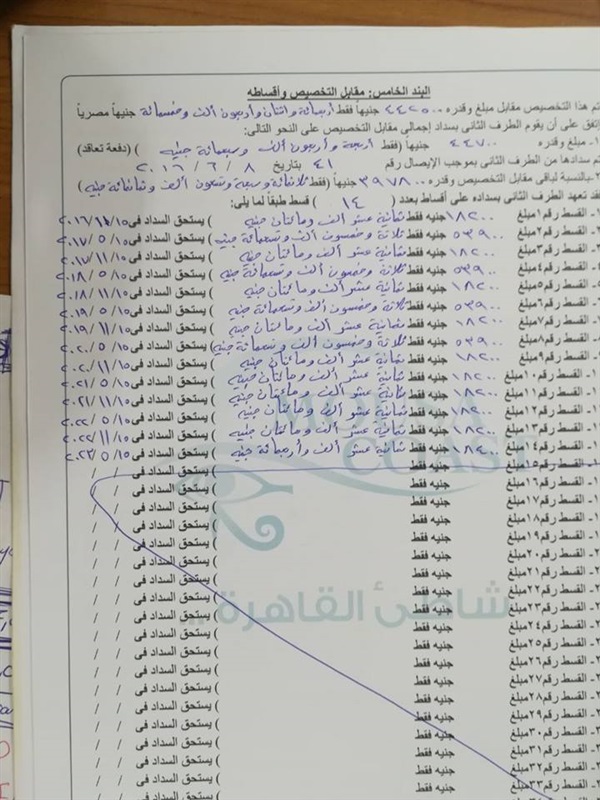 البند الخامس: مقابل التخصيص وأقساطه
تم هذا التخصيص مقابل مبلغ وقدره ٤٤٢٥٠٠ جنيهاً فقط أربعمائة واثنان وأربعون ألف وخمسمائة جنيهاً مصرياً
إتفق على أن يقوم الطرف الثانى بسداد إجمالي مقابل التخصيص على النحو التالى:
١- مبلغ وقدره ٤٤٧٠٠ جنيهاً (فقط أربعة وأربعون ألف وسبعمائة جنيه ) (دفعة تعاقد)
تم سدادها من الطرف الثانى بموجب الإيصال رقم ٤١ بتاريخ ٨ / ٦ / ٢٠١٦
٢- بالنسبة لباقى مقابل التخصيص وقدره ٣٩٧٨٠٠ جنيهاً (فقط ثلاثمائة وسبعة وتسعون ألف وثمانمائة جنيه )
فقد تعهد الطرف الثانى بسداده على أقساط بعدد ( ١٤ ) قسط طبقاً لما يلى:
١- القسط رقم ١ مبلغ ١٨٢٠٠ جنيه فقط ثمانية عشر ألف ومائتان جنيه ) يستحق السداد فى ٢٠١٦/١١/١٥
القسط رقم ٢ مبلغ ٥٣٩٠٠ جنيه فقط ثلاثة وخمسون ألف وتسعمائة جنيه ) يستحق السداد فى ٢٠١٧/٥/١٥
القسط رقم ٣ مبلغ ١٨٢٠٠ جنيه فقط ثمانية عشر ألف ومائتان جنيه ) يستحق السداد فى ٢٠١٧/١١/١٥
القسط رقم ٤ مبلغ ٥٣٩٠٠ جنيه فقط ثلاثة وخمسون ألف وتسعمائة جنيه ) يستحق السداد فى ٢٠١٨/٥/١٥
القسط رقم ٥ مبلغ ١٨٢٠٠ جنيه فقط ثمانية عشر ألف ومائتان جنيه ) يستحق السداد فى ٢٠١٨/١١/١٥
القسط رقم ٦ مبلغ ٥٣٩٠٠ جنيه فقط ثلاثة وخمسون ألف وتسعمائة جنيه ) يستحق السداد فى ٢٠١٩/٥/١٥
القسط رقم ٧ مبلغ ١٨٢٠٠ جنيه فقط ثمانية عشر ألف ومائتان جنيه ) يستحق السداد فى ٢٠١٩/١١/١٥
القسط رقم ٨ مبلغ ٥٣٩٠٠ جنيه فقط ثلاثة وخمسون ألف وتسعمائة جنيه ) يستحق السداد فى ٢٠٢٠/٥/١٥
القسط رقم ٩ مبلغ ١٨٢٠٠ جنيه فقط ثمانية عشر ألف ومائتان جنيه ) يستحق السداد فى ٢٠٢٠/١١/١٥
القسط رقم ١٠ مبلغ ١٨٢٠٠ جنيه فقط ثمانية عشر ألف ومائتان جنيه ) يستحق السداد فى ٢٠٢١/٥/١٥
القسط رقم ١١ مبلغ ١٨٢٠٠ جنيه فقط ثمانية عشر ألف ومائتان جنيه ) يستحق السداد فى ٢٠٢١/١١/١٥
القسط رقم ١٢ مبلغ ١٨٢٠٠ جنيه فقط ثمانية عشر ألف ومائتان جنيه ) يستحق السداد فى ٢٠٢٢/٥/١٥
القسط رقم ١٣ مبلغ ١٨٢٠٠ جنيه فقط ثمانية عشر ألف ومائتان جنيه ) يستحق السداد فى ٢٠٢٢/١١/١٥
القسط رقم ١٤ مبلغ ١٨٤٠٠ جنيه فقط ثمانية عشر ألف وأربعمائة جنيه ) يستحق السداد فى ٢٠٢٣/٥/١٥
القسط رقم ١٥ مبلغ جنيه فقط ) يستحق السداد فى / /
القسط رقم ١٦ مبلغ جنيه فقط ) يستحق السداد فى / /
القسط رقم ١٧ مبلغ جنيه فقط ) يستحق السداد فى / /
القسط رقم ١٨ مبلغ جنيه فقط ) يستحق السداد فى / /
القسط رقم ١٩ مبلغ جنيه فقط ) يستحق السداد فى / /
القسط رقم ٢٠ مبلغ جنيه فقط ) يستحق السداد فى / /
القسط رقم ٢١ مبلغ جنيه فقط ) يستحق السداد فى / /
القسط رقم ٢٢ مبلغ جنيه فقط ) يستحق السداد فى / /
القسط رقم ٢٣ مبلغ جنيه فقط ) يستحق السداد فى / /
القسط رقم ٢٤ مبلغ جنيه فقط ) يستحق السداد فى / /
القسط رقم ٢٥ مبلغ جنيه فقط ) يستحق السداد فى / /
القسط رقم ٢٦ مبلغ جنيه فقط ) يستحق السداد فى / /
القسط رقم ٢٧ مبلغ جنيه فقط ) يستحق السداد فى / /
القسط رقم ٢٨ مبلغ جنيه فقط ) يستحق السداد فى / /
القسط رقم ٢٩ مبلغ جنيه فقط ) يستحق السداد فى / /
القسط رقم ٣٠ مبلغ جنيه فقط ) يستحق السداد فى / /
القسط رقم ٣١ مبلغ جنيه فقط ) يستحق السداد فى / /
القسط رقم ٣٢ مبلغ جنيه فقط ) يستحق السداد فى / /
القسط رقم ٣٣ مبلغ جنيه فقط ) يستحق السداد فى / /
COAST
شاطئ القاهرة ...